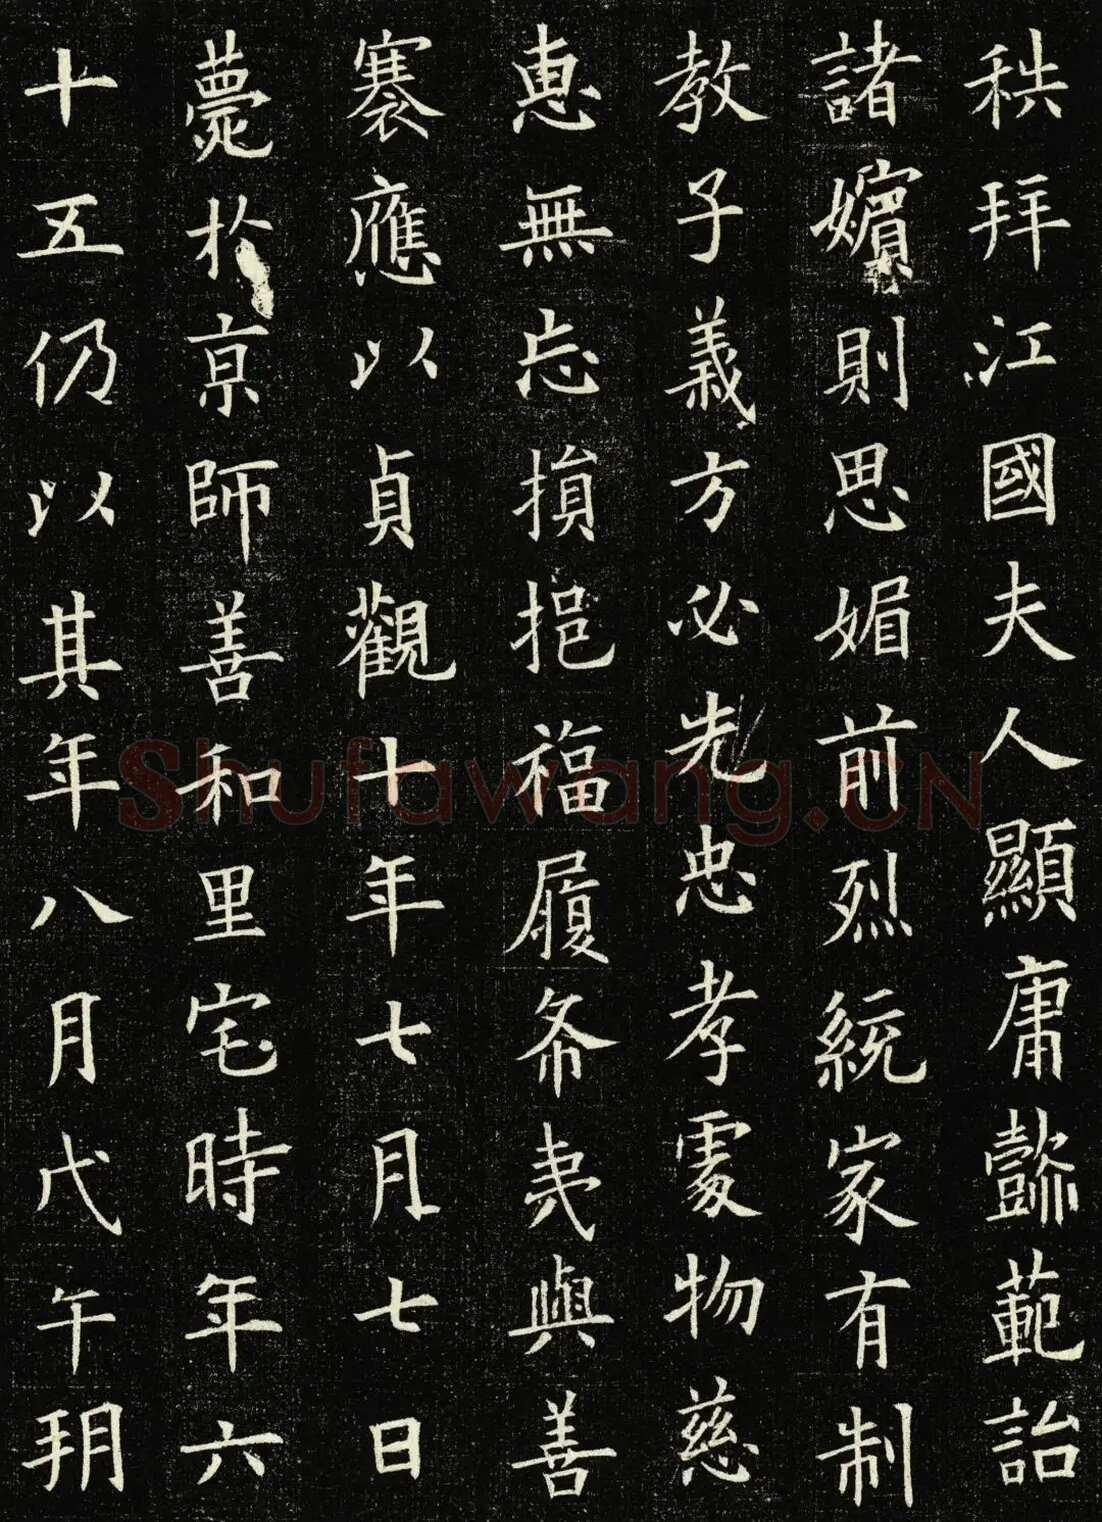 秩拜江國夫人顯庸懿範詒
諸嬪則思媚前烈統家有制
教子義方必先忠孝處物慈
惠無忘損挹福履希夷與善
褰應以貞觀十年七月七日
薨於京師善和里宅時年六
十五仍以其年八月戊午朔
Shufawang.CN